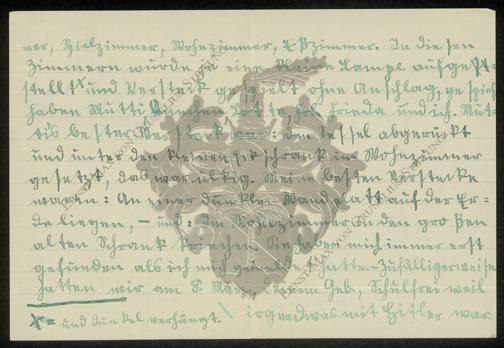 mer, Spielzimmer, Wohnzimmer, Eßzimmer. In diesen
Zimmern wurde je eine kleine Lampe aufge-
stellt x und Versteck gespielt ohne Anschlag, gespielt
haben Mutti, Lotte, Frieda und ich. Mut-
tis bestes Versteck war: den Sessel abgerückt
und unter den Schrank im Wohnzimmer
gesetzt, das war ulkig. Meine besten Verstecke
waren: An einer dunklen Wand platt auf der Er-
de liegen, – und: im Wohnzimmer in den großen
alten Schrank kriechen. Sie haben mich immer erst
gefunden als ich mich gemeldet hatte. – Zufälligerweise
hatten wir am 8. Mai, einem Geb, Schulfrei weil
x = und dunkel verhängt. \ irgendwas mit Hitler war